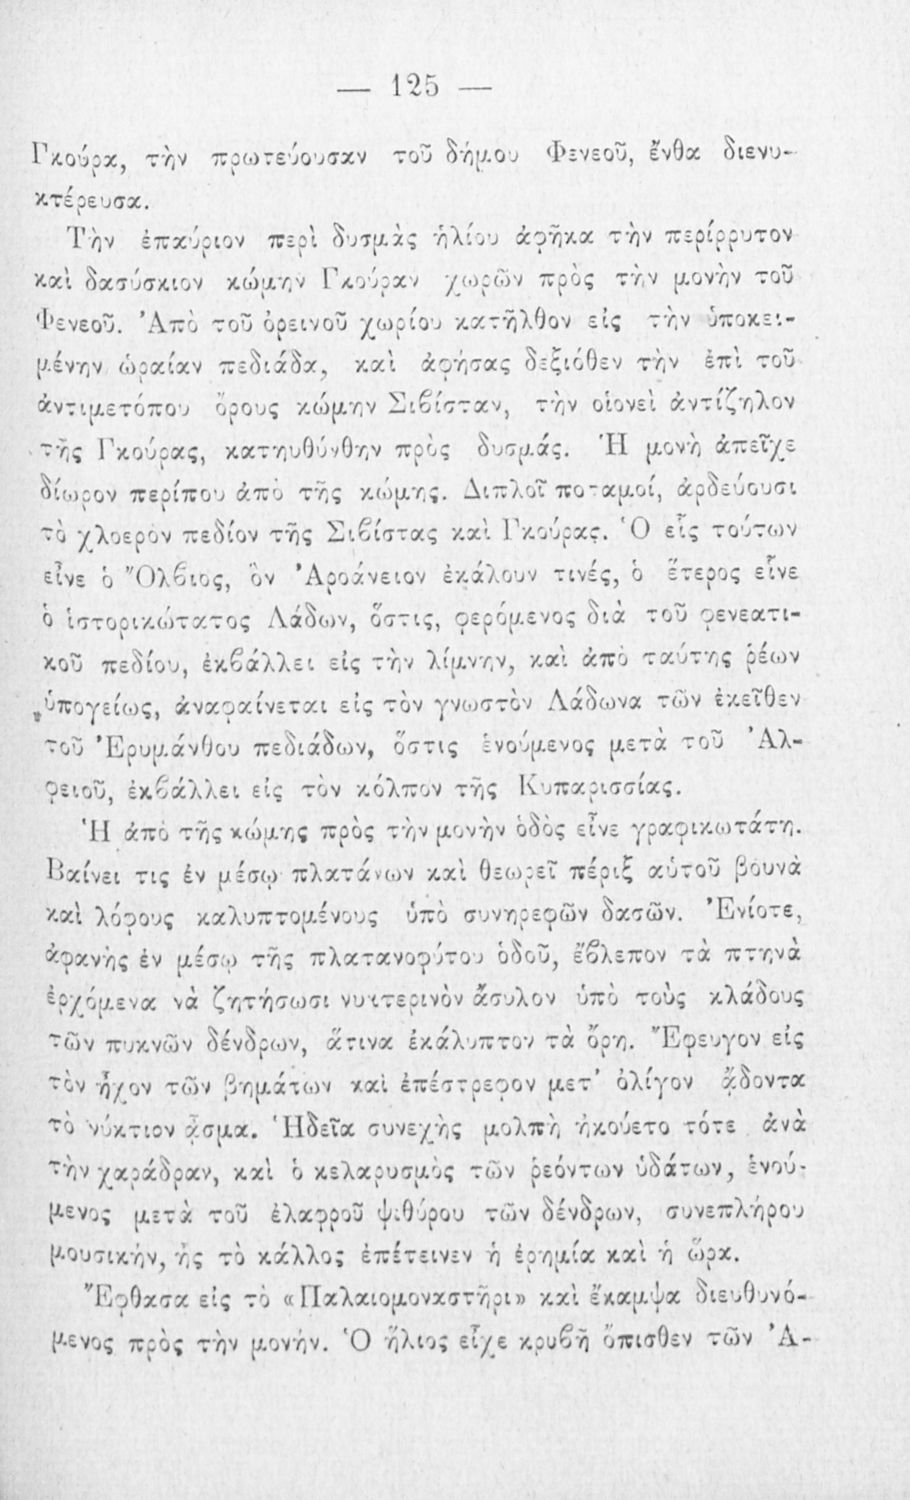 — 125 —
Γκούρα, τὴν πρωτεύουσαν τοῦ δήμου Φενεοῦ, ἔνθα διενυ-
κτέρευσα.
Τὴν ἐπαύριον περὶ δυσμὰς ἡλίου ἀφῆκα τὴν περίρρυτον
καὶ δασύσκιον κώμην Γκούραν χωρῶν πρὸς τὴν μονὴν τοῦ
Φενεοῦ. Ἀπὸ τοῦ ὀρεινοῦ χωρίου κατῆλθον εἰς τὴν ὑποκει-
μένην ὡραίαν πεδιάδα, καὶ ἀφήσας δεξιόθεν τὴν ἐπὶ τοῦ
ἀντιμετόπου ὄρους κώμην Σιβίσταν, τὴν οἱονεὶ ἀντίζηλον
τῆς Γκούρας, κατηυθύνθην πρὸς δυσμάς. Ἡ μονὴ ἀπεῖχε
δίωρον περίπου ἀπὸ τῆς κώμης. Διπλοῖ ποταμοί, ἀρδεύουσι
τὸ χλοερὸν πεδίον τῆς Σιβίστας καὶ Γκούρας. Ὁ εἷς τούτων
εἶνε ὁ Ὄλβιος, ὃν Ἀροάνειον ἐκάλουν τινές, ὁ ἕτερος εἶνε
ὁ ἱστορικώτατος Λάδων, ὅστις, φερόμενος διὰ τοῦ φενεατι-
κοῦ πεδίου, ἐκβάλλει εἰς τὴν λίμνην, καὶ ἀπὸ ταύτης ῥέων
ὑπογείως, ἀναφαίνεται εἰς τὸν γνωστὸν Λάδωνα τῶν ἐκεῖθεν
τοῦ Ἐρυμάνθου πεδιάδων, ὅστις ἑνούμενος μετὰ τοῦ Ἀλ-
φειοῦ, ἐκβάλλει εἰς τὸν κόλπον τῆς Κυπαρισσίας.
Ἡ ἀπὸ τῆς κώμης πρὸς τὴν μονὴν ὁδὸς εἶνε γραφικωτάτη.
Βαίνει τις ἐν μέσῳ πλατάνων καὶ θεωρεῖ πέριξ αὑτοῦ βουνὰ
καὶ λόφους καλυπτομένους ὑπὸ συνηρεφῶν δασῶν. Ἐνίοτε,
ἀφανὴς ἐν μέσῳ τῆς πλατανοφύτου ὁδοῦ, ἔβλεπον τὰ πτηνὰ
ἐρχόμενα νὰ ζητήσωσι νυκτερινὸν ἄσυλον ὑπὸ τοὺς κλάδους
τῶν πυκνῶν δένδρων, ἅτινα ἐκάλυπτον τὰ ὄρη. Ἔφευγον εἰς
τὸν ἦχον τῶν βημάτων καὶ ἐπέστρεφον μετ' ὀλίγον ᾄδοντα
τὸ νύκτιον ᾆσμα. Ἡδεῖα συνεχὴς μολπὴ ἠκούετο τότε ἀνὰ
τὴν χαράδραν, καὶ ὁ κελαρυσμὸς τῶν ῥεόντων ὑδάτων, ἑνού-
μενος μετὰ τοῦ ἐλαφροῦ ψιθύρου τῶν δένδρων, συνεπλήρου
μουσικήν, ἧς τὸ κάλλος ἐπέτεινεν ἡ ἐρημία καὶ ἡ ὥρα.
Ἔφθασα εἰς τὸ «Παλαιομοναστῆρι» καὶ ἔκαμψα διευθυνό-
μενος πρὸς τὴν μονήν. Ὁ ἥλιος εἶχε κρυβῆ ὄπισθεν τῶν Ἀ-